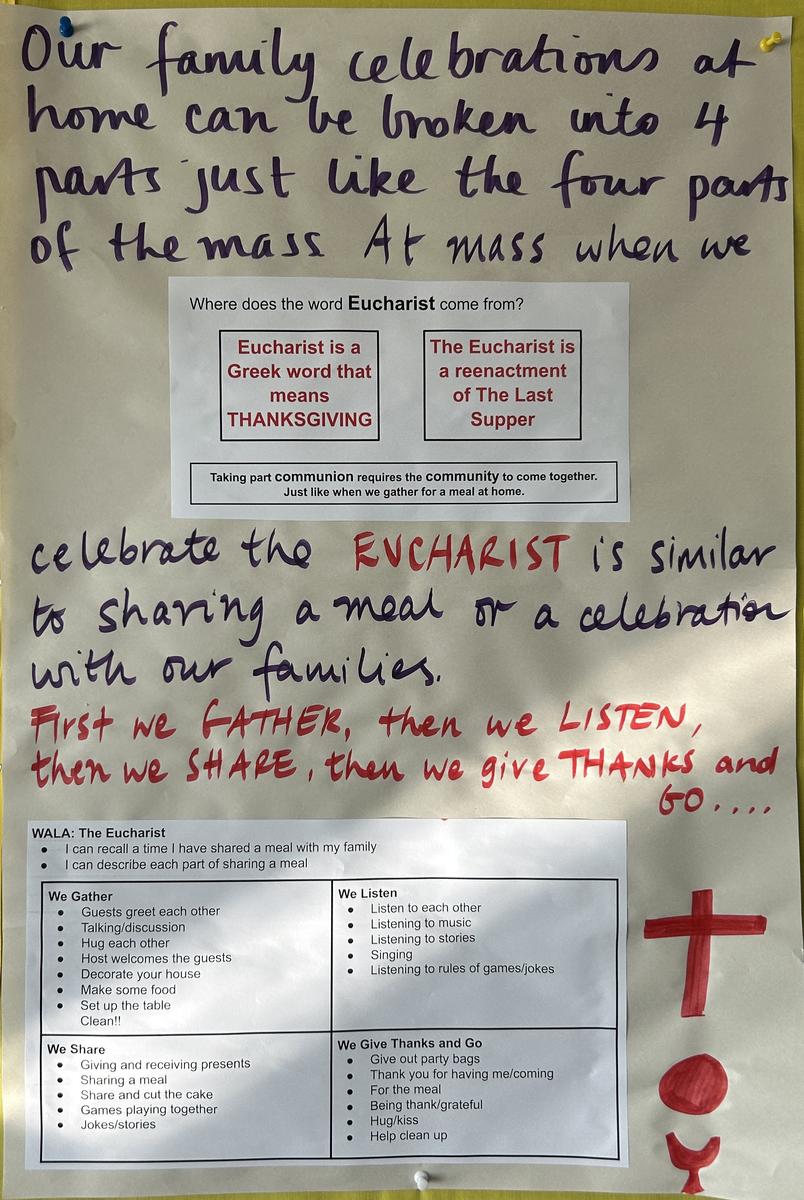 Our family celebrations at
home can be broken into 4
parts just like the four parts
of the mass At mass when we
Where does the word Eucharist come from?
Eucharist is a
Greek word that
means
THANKSGIVING
The Eucharist is
a reenactment
of The Last
Supper
Taking part communion requires the community to come together.
Just like when we gather for a meal at home.
celebrate the EUCHARIST is similar
to sharing a meal or a celebration
with our families.
First we GATHER, then we LISTEN,
then we SHARE, then we give THANKS and
GO....
WALA: The Eucharist
• I can recall a time I have shared a meal with my family
• I can describe each part of sharing a meal
We Gather
• Guests greet each other
• Talking/discussion
• Hug each other
• Host welcomes the guests
• Decorate your house
• Make some food
• Set up the table
Clean!!
We Listen
• Listen to each other
• Listening to music
• Listening to stories
• Singing
• Listening to rules of games/jokes
We Share
• Giving and receiving presents
• Sharing a meal
• Share and cut the cake
• Games playing together
• Jokes/stories
We Give Thanks and Go
• Give out party bags
• Thank you for having me/coming
• For the meal
• Being thank/grateful
• Hug/kiss
• Help clean up